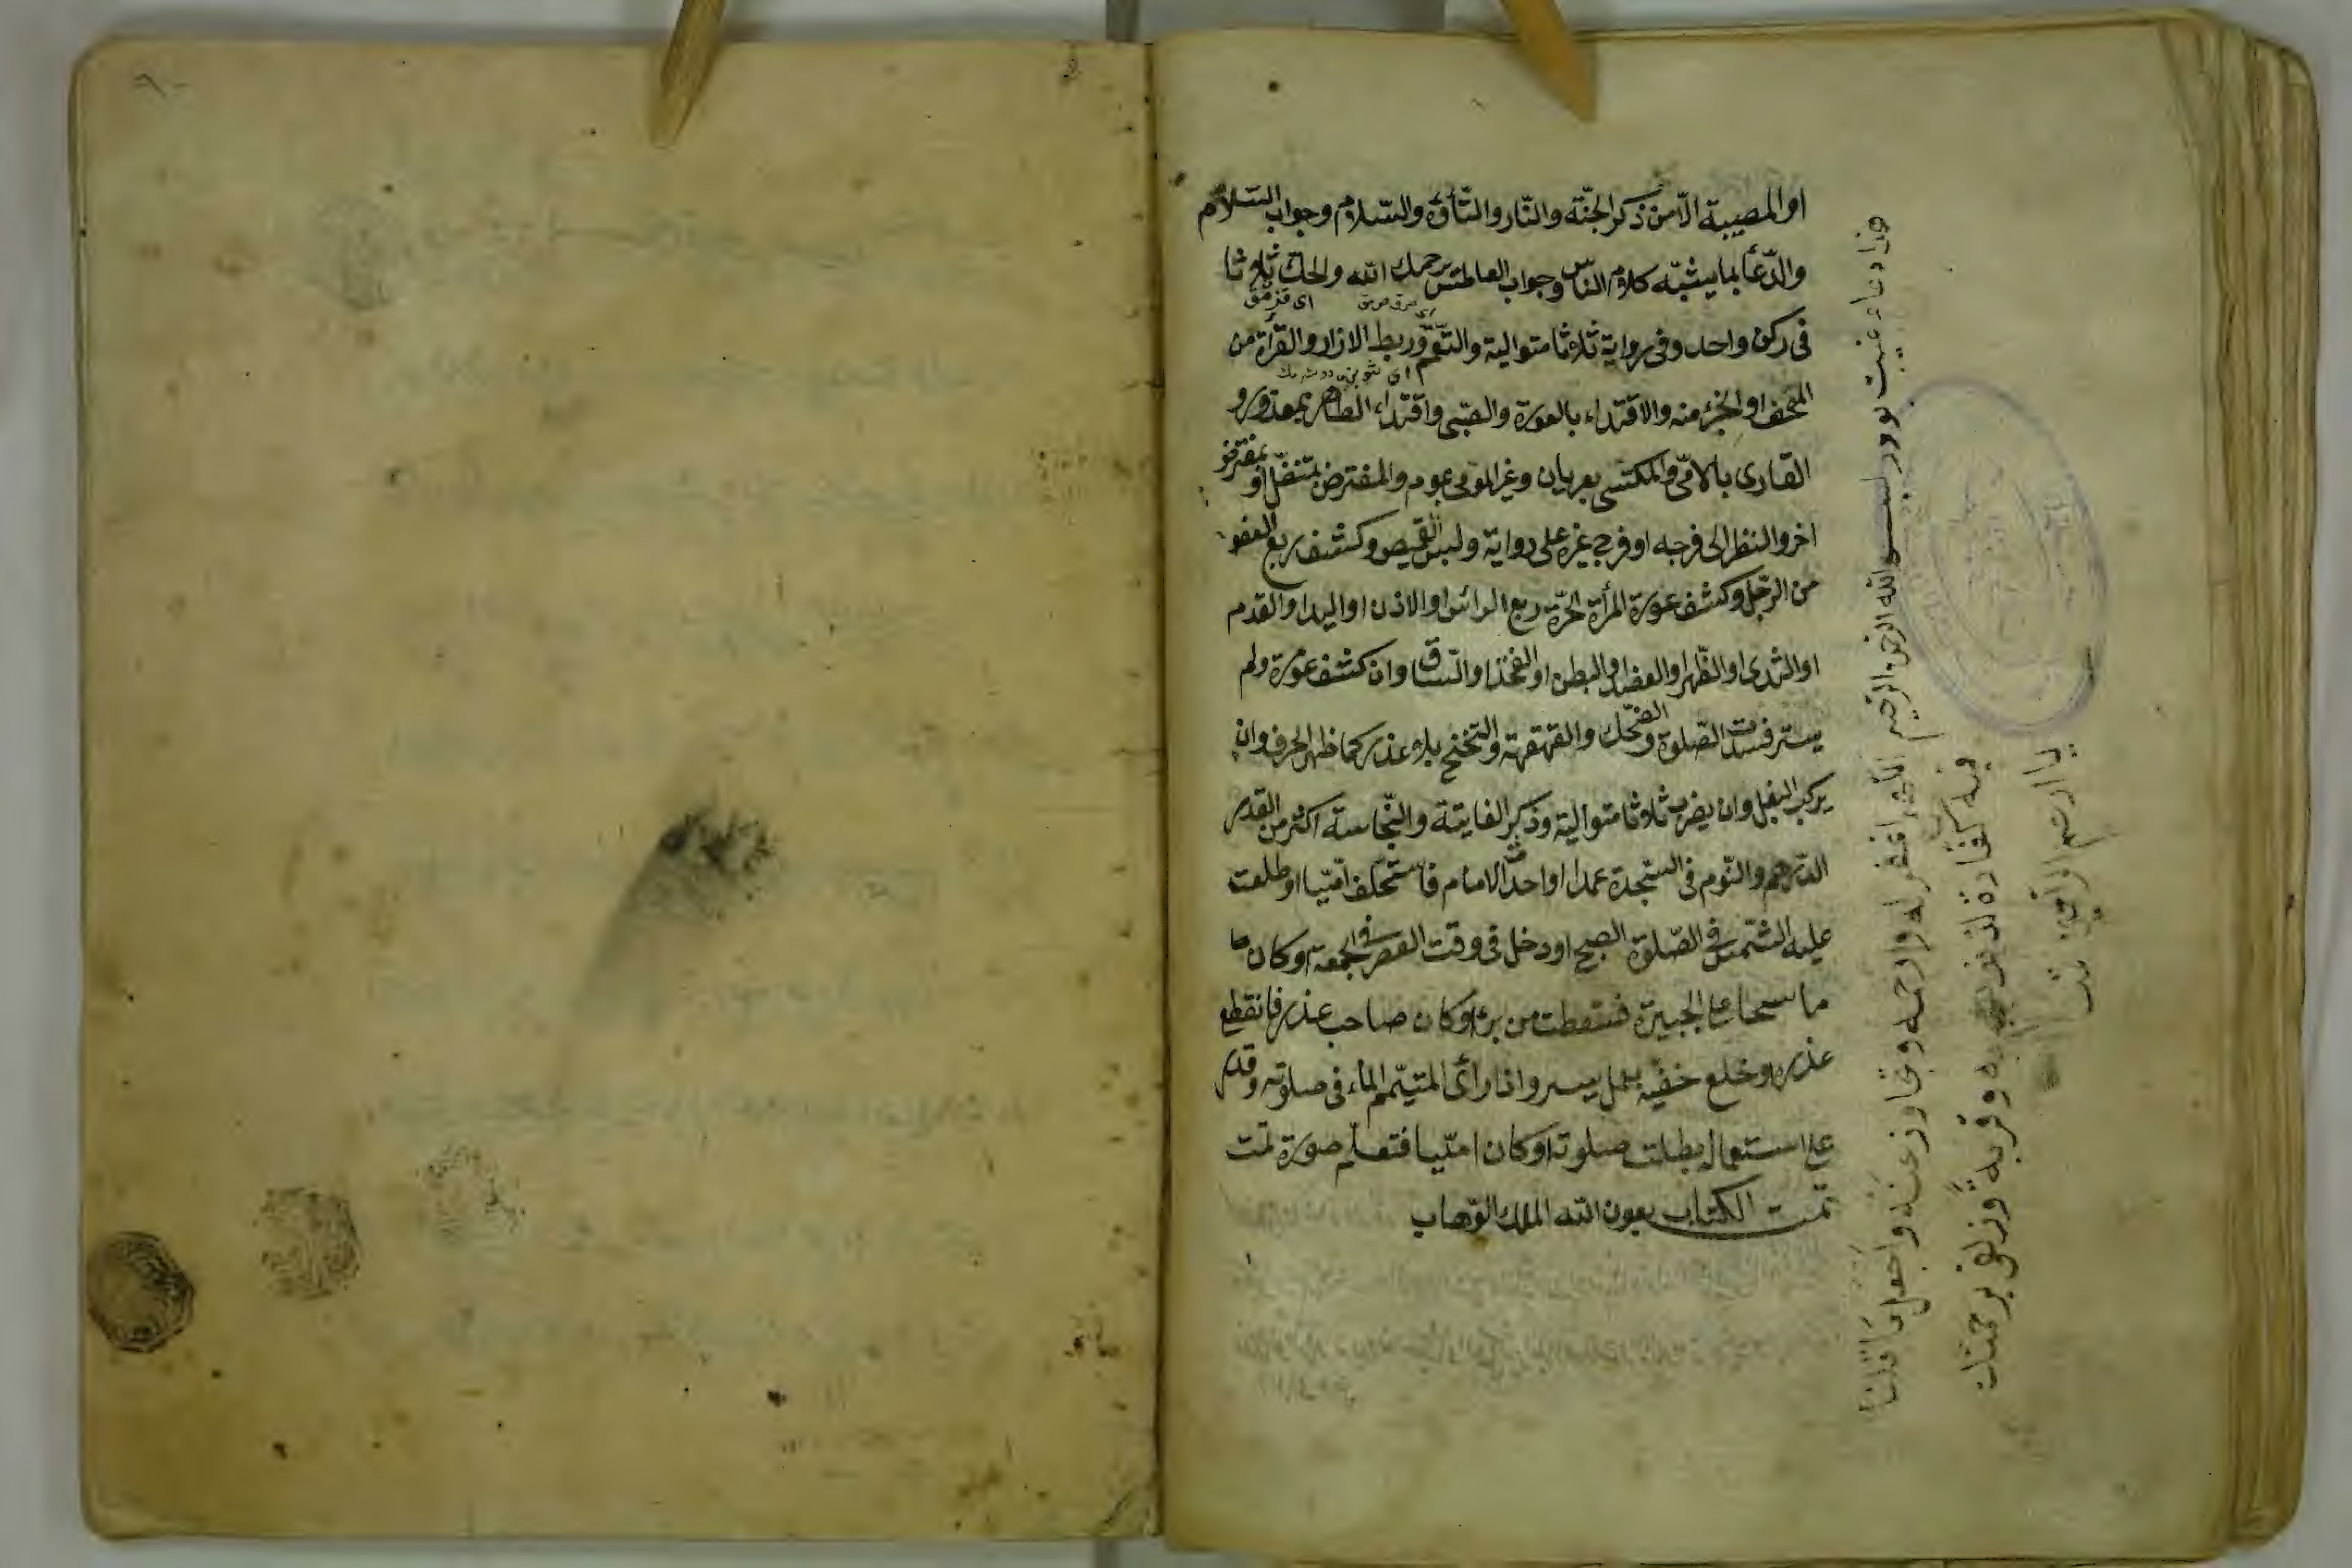 او المصيبة الا من ذكر الجنّة والنّار والتّأوّه والسّلام وجواب السّلام
والدّعأ بما يشبّه كلام النّاس وجواب العاطش يرحمك الله والحكّ ثلاثا
فى ركن واحد وفى رواية ثلاثا متوالية وربط الازار والقرأة من
المصحف او الجزء منه والاقتداء بالعورة والصّبى واقتداء الطاهر بمعذور و
القارى بالامّى والمكتسى بعريان وغير المومى بموم والمفترض بمتنفّل او بمفترض
اخر والنظر الى فرجه او فرج غيره على رواية ولبس القميص وكشف ربع العضو
من الرّجل وكشف عورة المرأة الحرّة ربع الرائس او الاذن او اليد او القدم
او الثدى او الظّهر او العضد او البطن او الفخذ او السّاق وان كشف عورة ولم
يستر فسدت الصّلوة وضحك والقهقهة والتخنح بلا عذر كما ظهر الحرف وان
يركب البغل وان يضرب ثلاثا متوالية وذكر الفايتة والنّجاسة اكثر من القدر
الدّرهم والنّوم فى السّجدة عمدا او احدث الامام فاستخلف امّيا او طلعت
عليه الشّمس فى الصّلوة الصبح او دخل فى وقت العصر فى الجمعة او كان
ماسحا على الجبيرة فسقطت من برء او كان صاحب عذر فانقطع
عذره او خلع خفّيه بعمل يسير واذا رأى المتيمّم الماء فى صلوته وقدر
على استعماله بطلت صلوته او كان امّيا فتعلّم صورة تمّت
تمت الكتاب بعون الله الملك الوّهاب
هذا دعاء غيبت بودر بسم الله الرحمن الرحيم اللّهم اغفر له وارحمه وتجاوز عنه واجعل ما قلنا
فيه كفارة وقربة وزلفى برحمتك
يا ارحم الراحمين